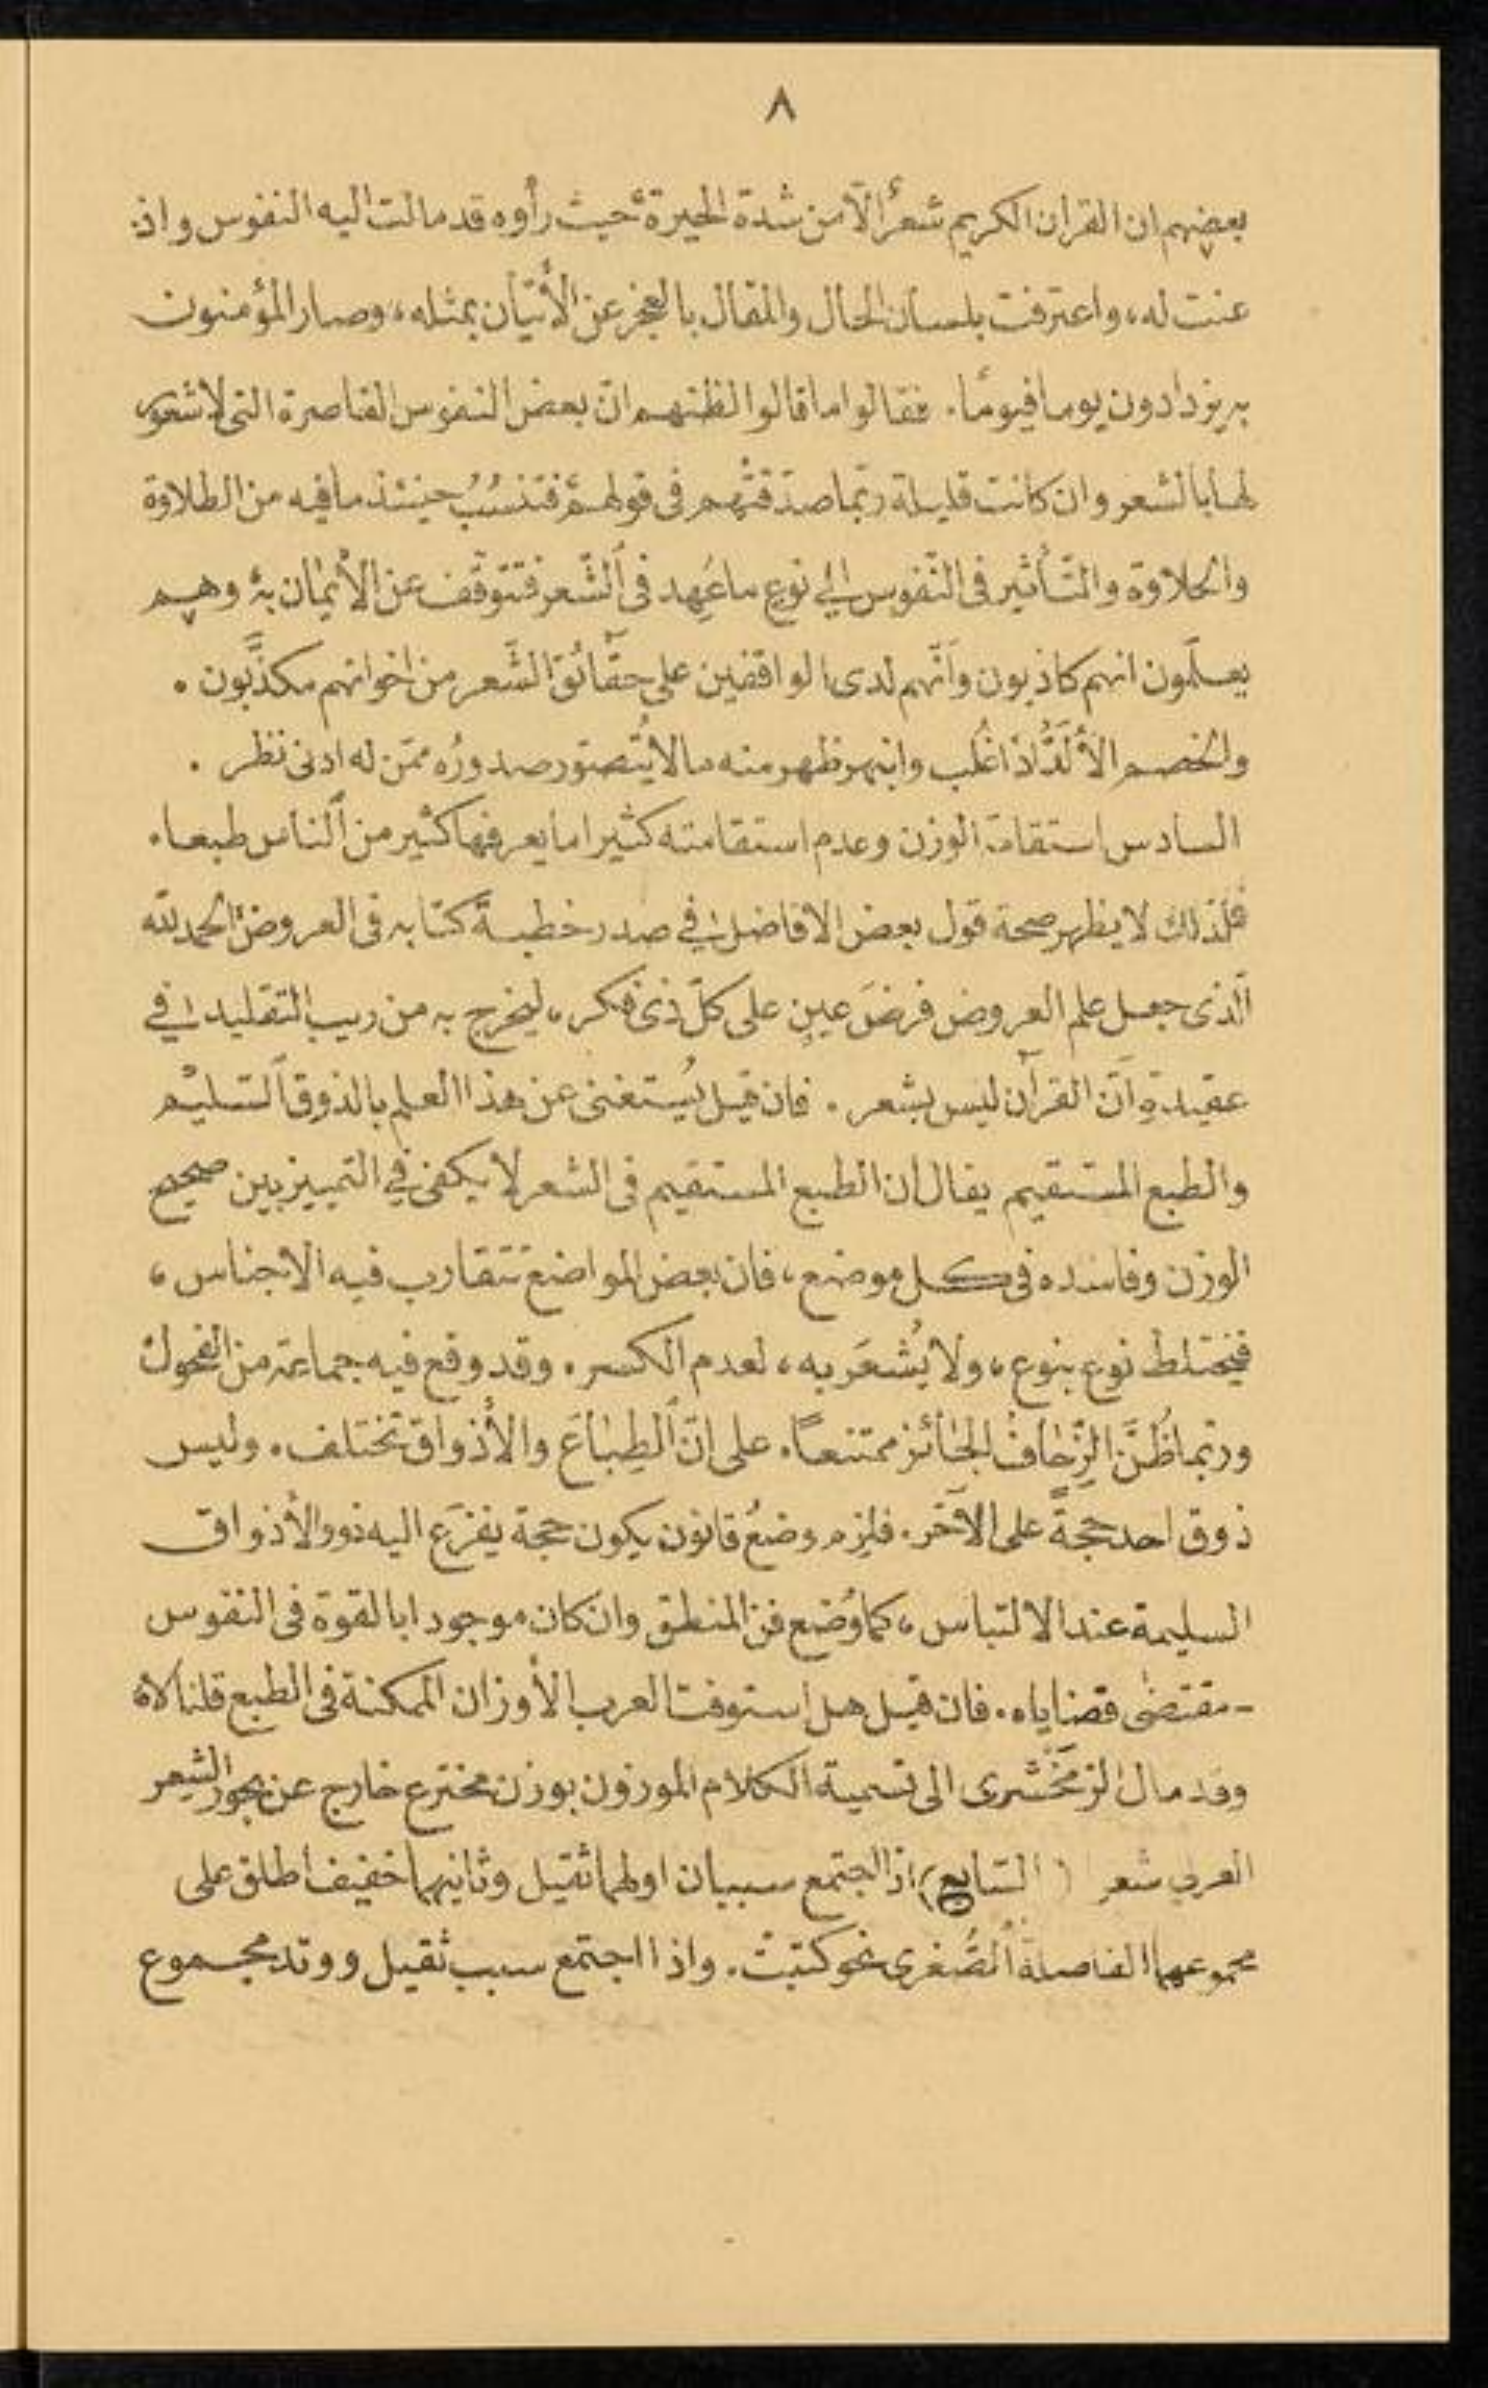 ٨
بعضهم ان القران الكريم شعرٌ الّا من شدة الحيرة، حيث رأوه قد مالت اليه النفوس واذ:
عنت له، واعترفت بلسان الحال والمقال بالعجز عن الأتيان بمثله، وصار المؤمنون
به يزدادون يوما فيومًا. فقالوا ما قالوا لظنهم انّ بعض النفوس القاصرة التى لا شعور
لها بالشعر وان كانت قليلة ربّما صدّقتْهم فى قولهم، فتنسُبُ حينئذ ما فيه من الطلاوة
والحلاوة والتّأثير فى النّفوس الى نوع ما عُهد فى الشّعر فتتوقّف عن الأيمان به، وهم
يعلمون انهم كاذبون وانّهم لدى الواقفين على حقائق الشّعر من اخوانهم مكذّبون.
والخصم الألَدُّ اذا غُلب وانبهر ظهر منه ما لا يُتصوّر صدورُه ممّن له ادنى نظر.
السادس استقامة الوزن وعدم استقامته كثيرا ما يعرفها كثير من الناس طبعا.
فلذلك لا يظهر صحة قول بعض الافاضل في صدر خطبة كتابه فى العروض، الحمد لله
الّذى جعل علم العروض فرضَ عينٍ على كلّ ذى فكر، ليخرج به من ريب التقليد في
عقيدةِ انّ القرآن ليس بشعر. فان قيل يُستغنى عن هذا العلم بالذوق السّليم
والطبع المستقيم يقال ان الطبع المستقيم فى الشعر لا يكفى في التمييز بين صحيح
الوزن وفاسده فى كل موضع، فان بعض المواضع تتقارب فيه الاجناس،
فيختلط نوع بنوع، ولا يُشعَر به، لعدم الكسر. وقد وقع فيه جماعة من الفحول
وربّما ظُنَّ الزّحافُ الجائز ممتنعاً. على انّ الطِباعَ والأذواق تختلف. وليس
ذوق احد حجةً على الآخر. فلزم وضعُ قانون يكون حجة يفزَع اليه ذوو الأذواق
السليمة عند الالتباس، كما وُضع فن المنطق وان كان موجودا بالقوة فى النفوس
- مقتضى قضاياه. فان قيل هل استوفت العرب الأوزان الممكنة فى الطبع قلنا لا،
وقد مال الزمَخْشرى الى تسمية الكلام الموزون بوزن مخترع خارج عن بحور الشعر
العربي شعر (السّابع) اذا اجتمع سببان اولهما ثقيل وثانيهما خفيف اطلق على
مجموعهما الفاصلة الصُغرى نحو كتبتْ. واذا اجتمع سبب ثقيل ووتد مجموع